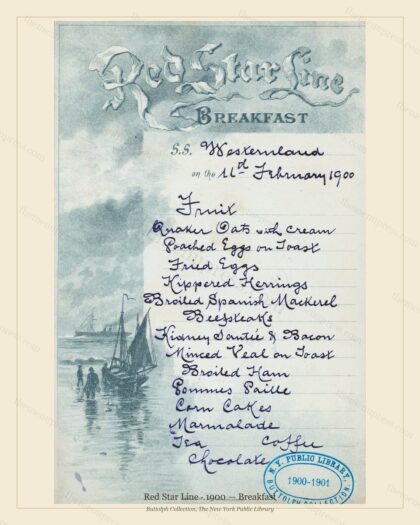 Red Star Line
BREAKFAST
S.S. Westernland
on the 11th February 1900
Fruit
Quaker Oats with Cream
Poached Eggs on Toast
Fried Eggs
Kippered Herrings
Broiled Spanish Mackerel
Beefsteaks
Kidney Sautée & Bacon
Minced Veal on Toast
Broiled Ham
Pommes Paille
Corn Cakes
Marmalade
Tea Coffee
Chocolate
N.Y. PUBLIC LIBRARY
1900-1901
BUTTOLPH COLLECTION
Red Star Line - 1900 — Breakfast
Buttolph Collection, The New York Public Library